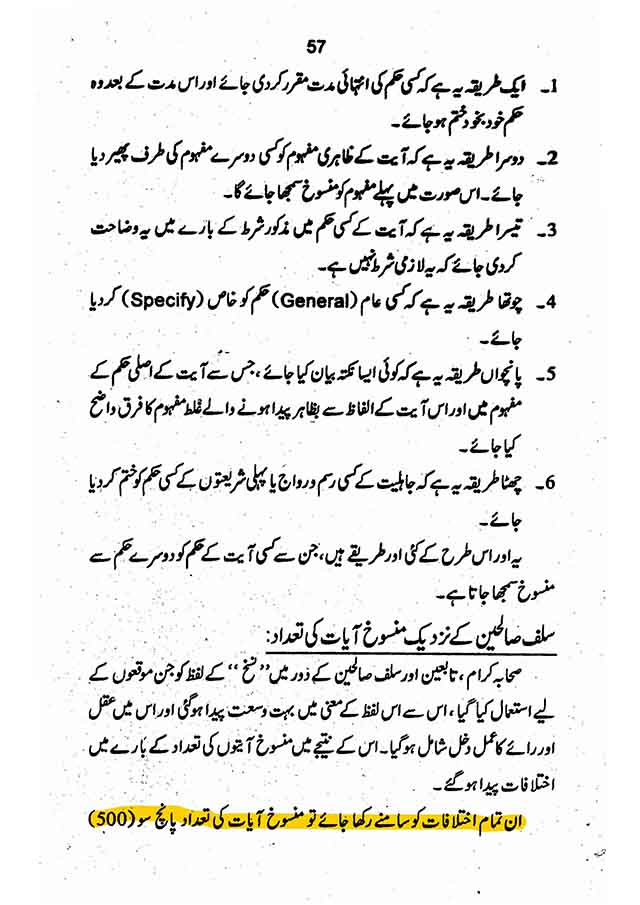 57
1۔ ایک طریقہ یہ ہے کہ کسی حکم کی انتہائی مدت مقرر کر دی جائے اور اس مدت کے بعد وہ
حکم خود بخود ختم ہو جائے۔
2۔ دوسرا طریقہ یہ ہے کہ آیت کے ظاہری مفہوم کو کسی دوسرے مفہوم کی طرف پھیر دیا
جائے۔ اس صورت میں پہلے مفہوم کو منسوخ سمجھا جائے گا۔
3۔ تیسرا طریقہ یہ ہے کہ آیت کے کسی حکم میں مذکور شرط کے بارے میں یہ وضاحت
کر دی جائے کہ یہ لازمی شرط نہیں ہے۔
4۔ چوتھا طریقہ یہ ہے کہ کسی عام (General) حکم کو خاص (Specify) کر دیا
جائے۔
5۔ پانچواں طریقہ یہ ہے کہ کوئی ایسا نکتہ بیان کیا جائے، جس سے آیت کے اصلی حکم کے
مفہوم میں اور اس آیت کے الفاظ سے بظاہر پیدا ہونے والے غلط مفہوم کا فرق واضح
کیا جائے۔
6۔ چھٹا طریقہ یہ ہے کہ جاہلیت کے کسی رسم و رواج یا پہلی شریعتوں کے کسی حکم کو ختم کر دیا
جائے۔
یہ اور اس طرح کے کئی اور طریقے ہیں، جن سے کسی آیت کے حکم کو دوسرے حکم سے
منسوخ سمجھا جاتا ہے۔
سلف صالحین کے نزدیک منسوخ آیات کی تعداد:
صحابہ کرام، تابعین اور سلف صالحین کے دَور میں ”نسخ“ کے لفظ کو جن موقعوں کے
لیے استعمال کیا گیا، اس سے اس لفظ کے معنی میں بہت وسعت پیدا ہوگئی اور اس میں عقل
اور رائے کا عمل دخل شامل ہوگیا۔ اس کے نتیجے میں منسوخ آیتوں کی تعداد کے بارے میں
اختلافات پیدا ہو گئے۔
ان تمام اختلافات کو سامنے رکھا جائے تو منسوخ آیات کی تعداد پانچ سو (500)